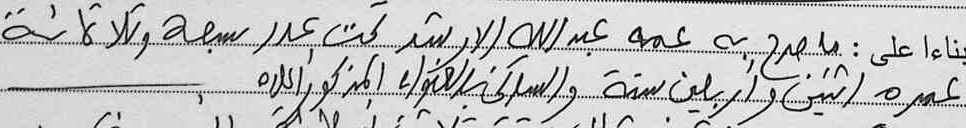 بناءا على : ما صرح به عمه عبد الله الارشد تحت عدد سبعة وثلاثمائة
عمره اثنين وأربعين سنة والساكن بالعنوان المذكور أعلاه